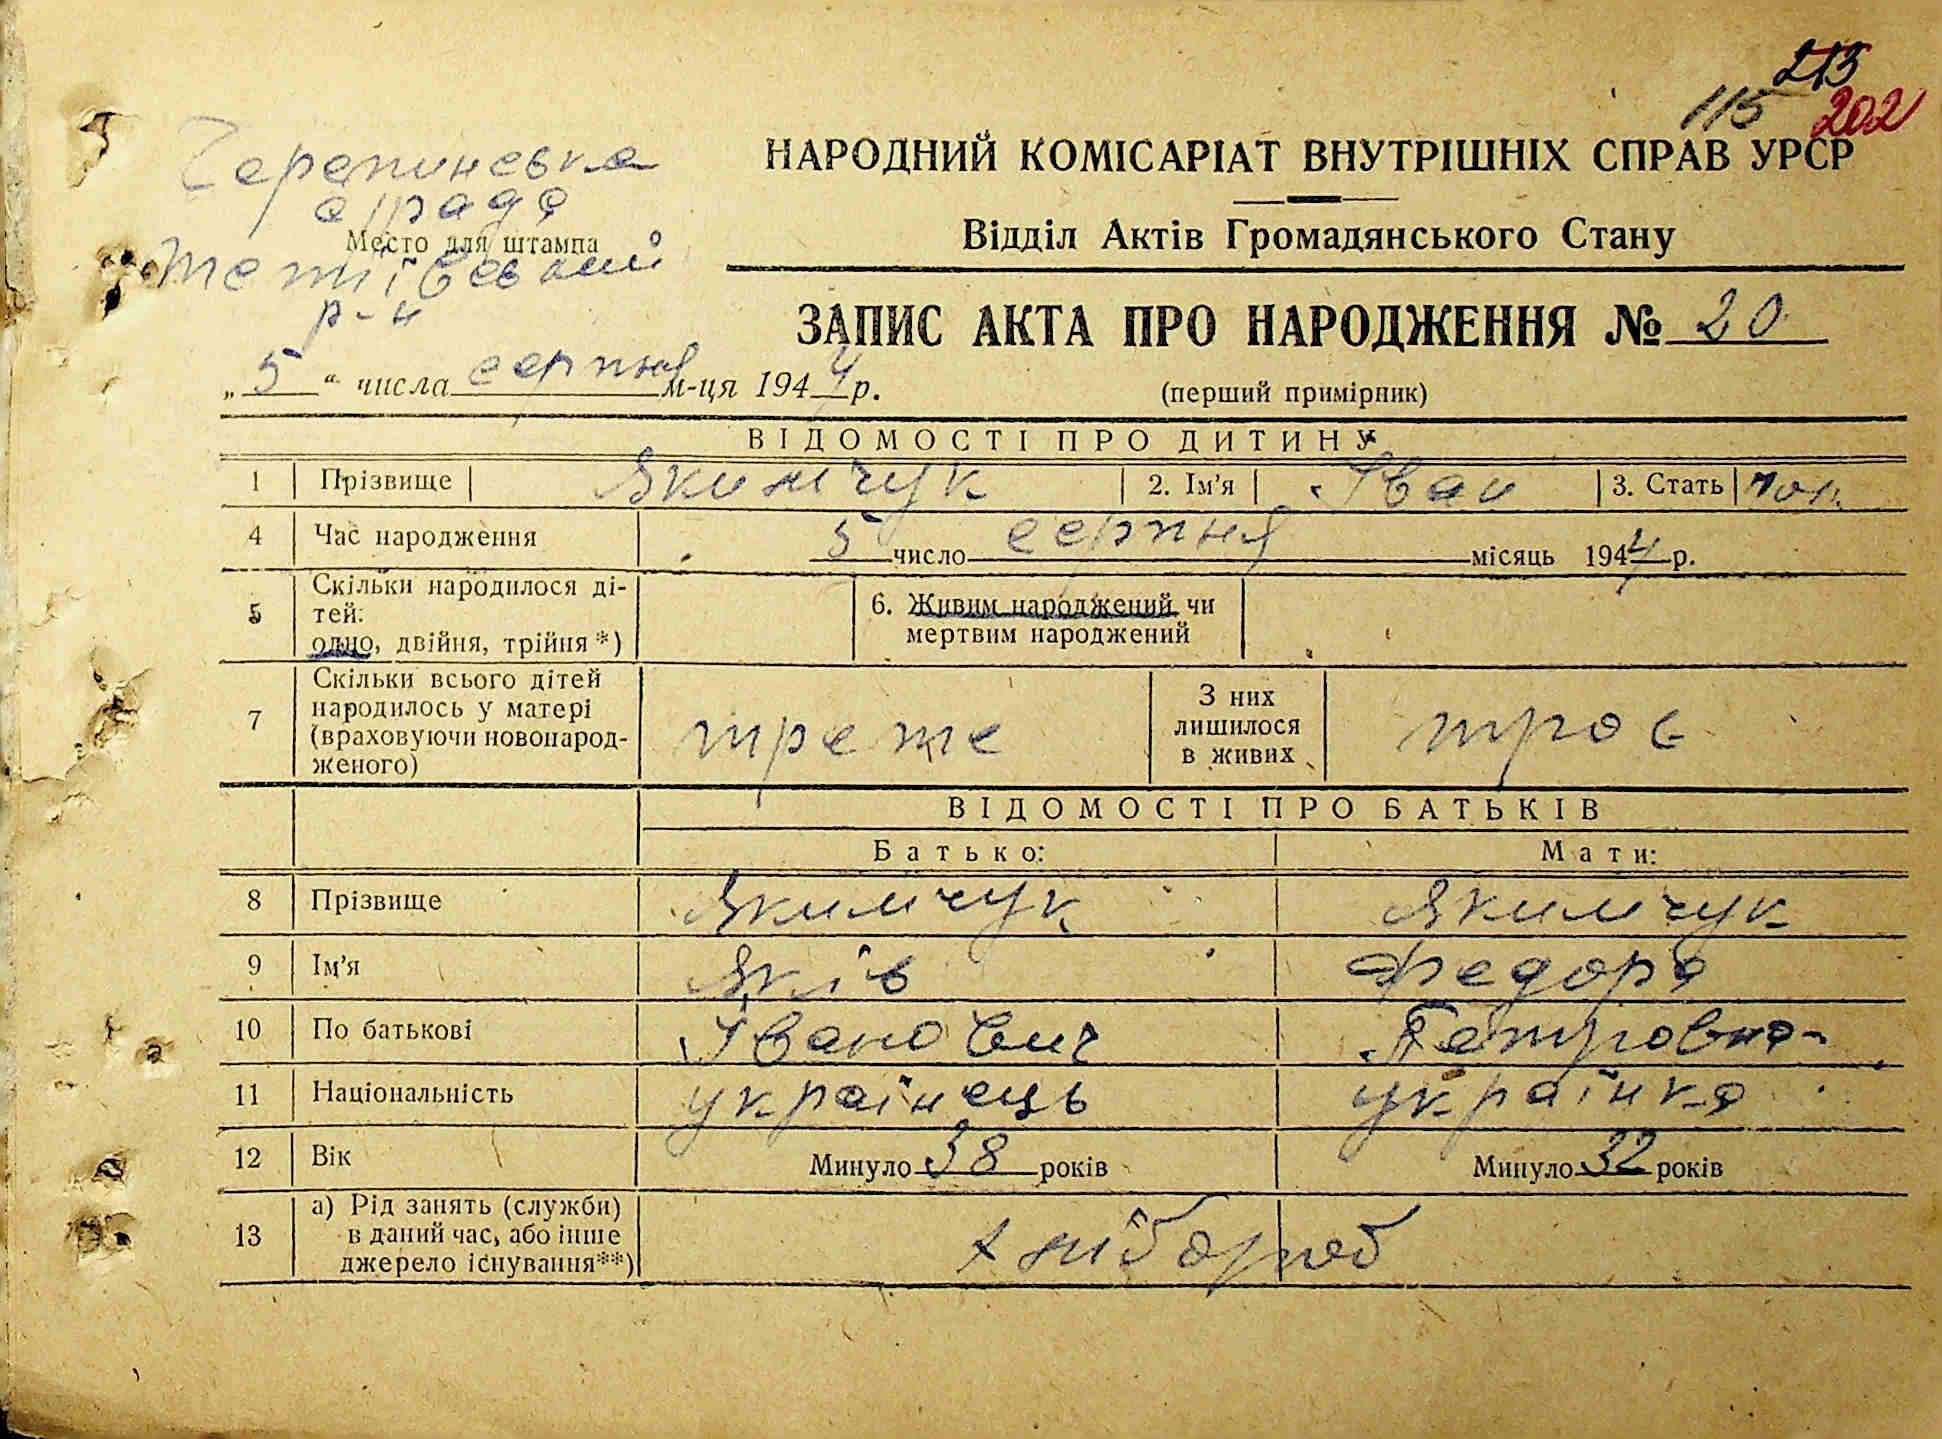 213
115 202
Черепинська
с/рада
Место для штампа
Тетіївський
р-н
НАРОДНИЙ КОМІСАРІАТ ВНУТРІШНІХ СПРАВ УРСР
Відділ Актів Громадянського Стану
ЗАПИС АКТА ПРО НАРОДЖЕННЯ № 20
„ 5 “ числа серпня м-ця 1944 р.
(перший примірник)
ВІДОМОСТІ ПРО ДИТИНУ
1 Прізвище Якимчук 2. Ім'я Іван 3. Стать чол.
4 Час народження 5 число серпня місяць 1944 р.
5 Скільки народилося ді-
тей:
одно, двійня, трійня *)
6. Живим народжений чи
мертвим народжений
7 Скільки всього дітей
народилось у матері
(враховуючи новонарод-
женого)
трете
З них
лишилося
в живих
троє
ВІДОМОСТІ ПРО БАТЬКІВ
Батько: Мати:
8 Прізвище Якимчук Якимчук
9 Ім'я Яків Федора
10 По батькові Іванович Петровна
11 Національність українець українка
12 Вік Минуло 38 років Минуло 32 років
13 а) Рід занять (служби)
в даний час, або інше
джерело існування**)
хлібороб